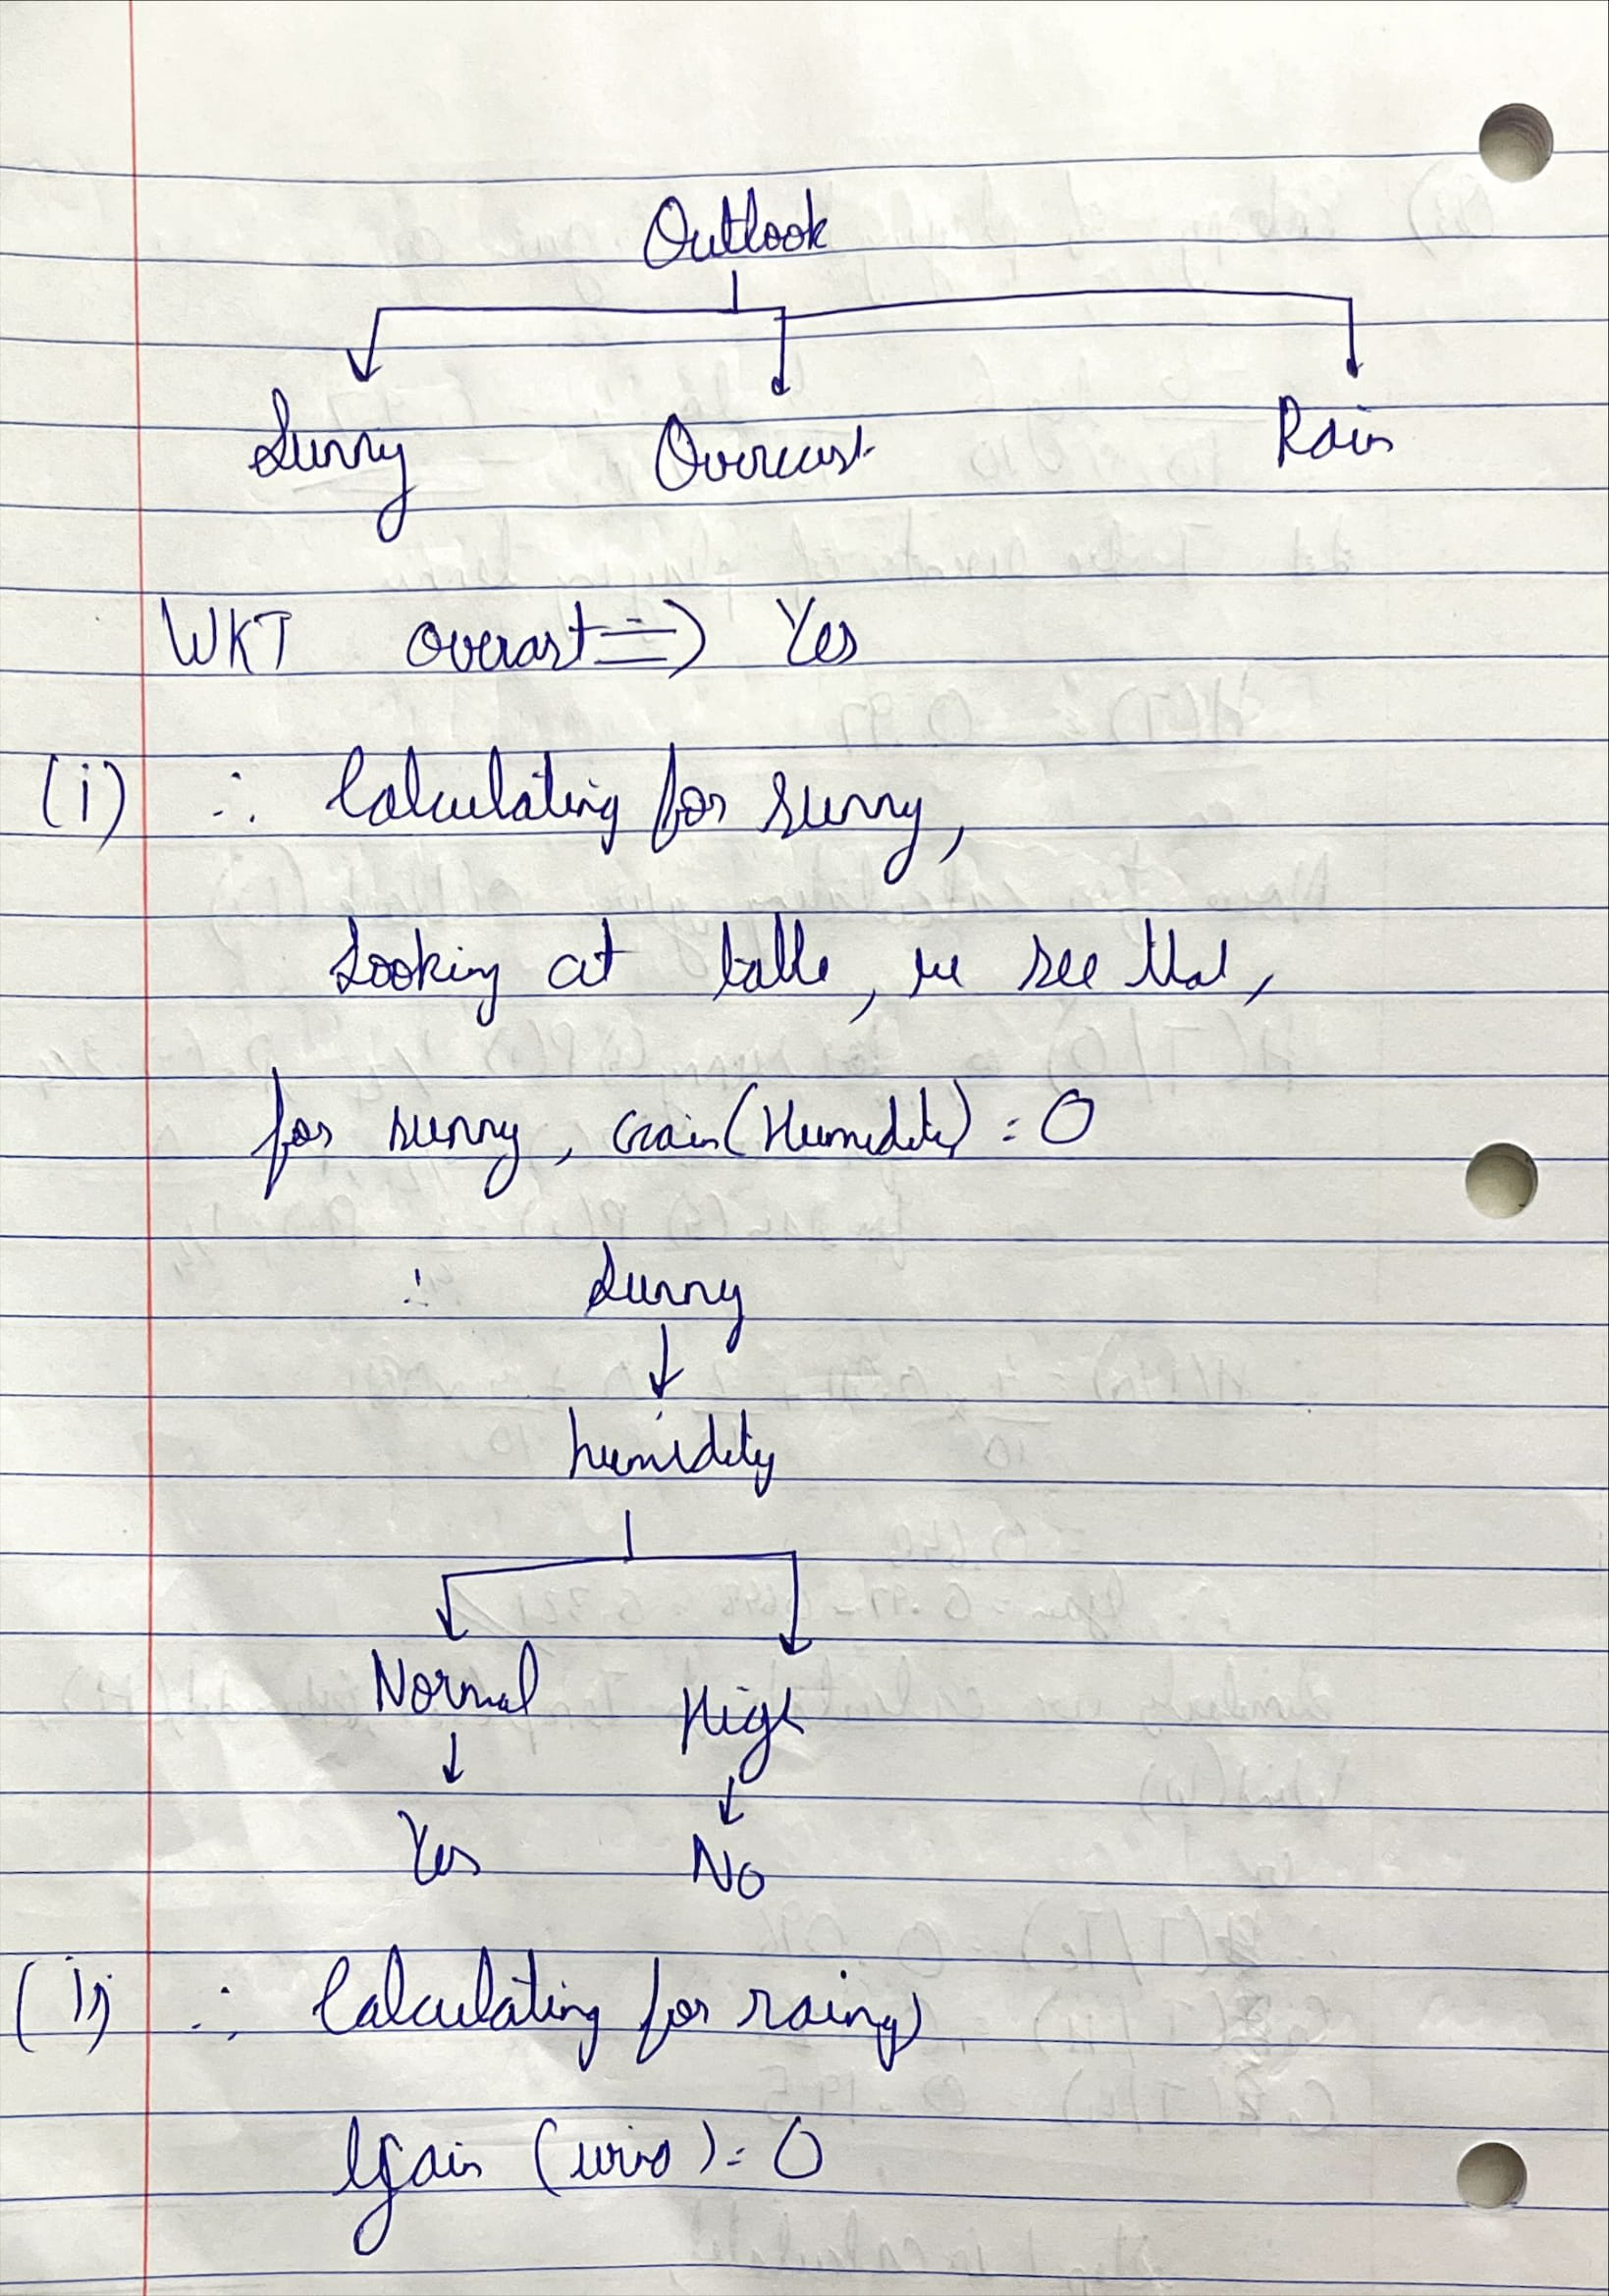 Outlook
Sunny Overcast Rain
WKT overast => Yes
(i) ∴ Calculating for sunny,
Looking at table, we see that,
for sunny, Gain(Humidity) = 0
∴ Sunny
humidity
Normal High
Yes No
(ii) ∴ Calculating for rainy)
Gain (wind) = 0